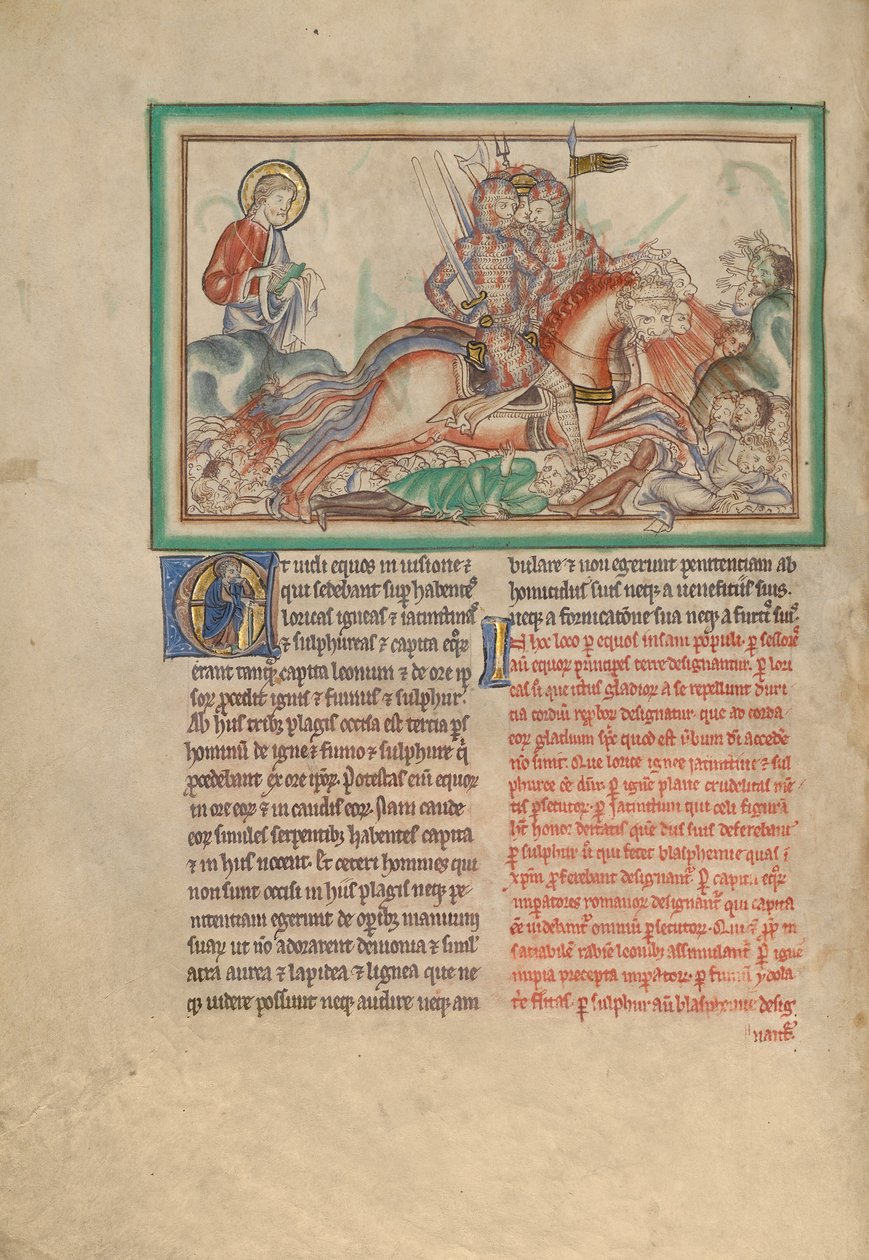 Et uidi equos in uisione ⁊
qui sedebant sup̄ habentes
loricas igneas ⁊ iacinctinas
⁊ sulphureas ⁊ capita eqr̄
erant tanq̄ capita leonum ⁊ de ore ip
sor̄ ꝓcedit ignis ⁊ fumus ⁊ sulphur.
Ab hiis tribꝫ plagis occisa est tercia ps̄
hominū de igne ⁊ fumo ⁊ sulphure q̄
ꝓcedebant ex ore ipor̄. Potestas eniꝫ equor̄
in ore eor̄ ⁊ in caudis eor̄. Nam caude
eor̄ similes serpentibꝫ habentes capita
⁊ in hiis nocent. Et ceteri homines qui
non sunt occisi in hiis plagis neqꝫ pe-
nitentiam egerunt de opibꝫ manuum
suar̄ ut nō adorarent demonia ⁊ simul
acra aurea ⁊ lapidea ⁊ lignea que ne
qꝫ uidere possunt neqꝫ audire neqꝫ am
bulare ⁊ non egerunt penitentiam ab
homicidiis suis neqꝫ a ueneficiis suis.
neqꝫ a fornicatōne sua neqꝫ a furtis suis.
In hoc loco ꝑ equos insani populi. ꝑ sessores
aū equor̄ principes terre designantur. ꝑ lori
cas si que ictus gladior̄ a se repellunt duri
tia cordiū reꝓbor̄ designatur. que ad corda
eor̄ gladium sp̄c quod est ūbum di accede
nō sinit. Que lorice ignee iacinctine ⁊ sul
phuree eē dnr̄. ꝑ ignē plane crudelitas mē
tis ꝑsecutor̄. ꝑ iacinctum qui celi figurā
ht̄ honor deitatis quē diis suis deferebant
ꝑ sulphur ū qui fetet blasphemie quas ī
xp̄m ꝓferebant designant̄. ꝑ capita eqr̄
imꝑatores romanor̄ designant̄ qui capita
eē uidebant̄ omniū ꝑsecutor̄. Qui ⁊ ꝓp̄ in
satiabilē rabiem leonibꝫ assimilant̄. ꝑ ignē
impia precepta imꝑator̄. ꝑ fumū ydola
ꝑ sulphur aū blasphemie desig
nant̄.